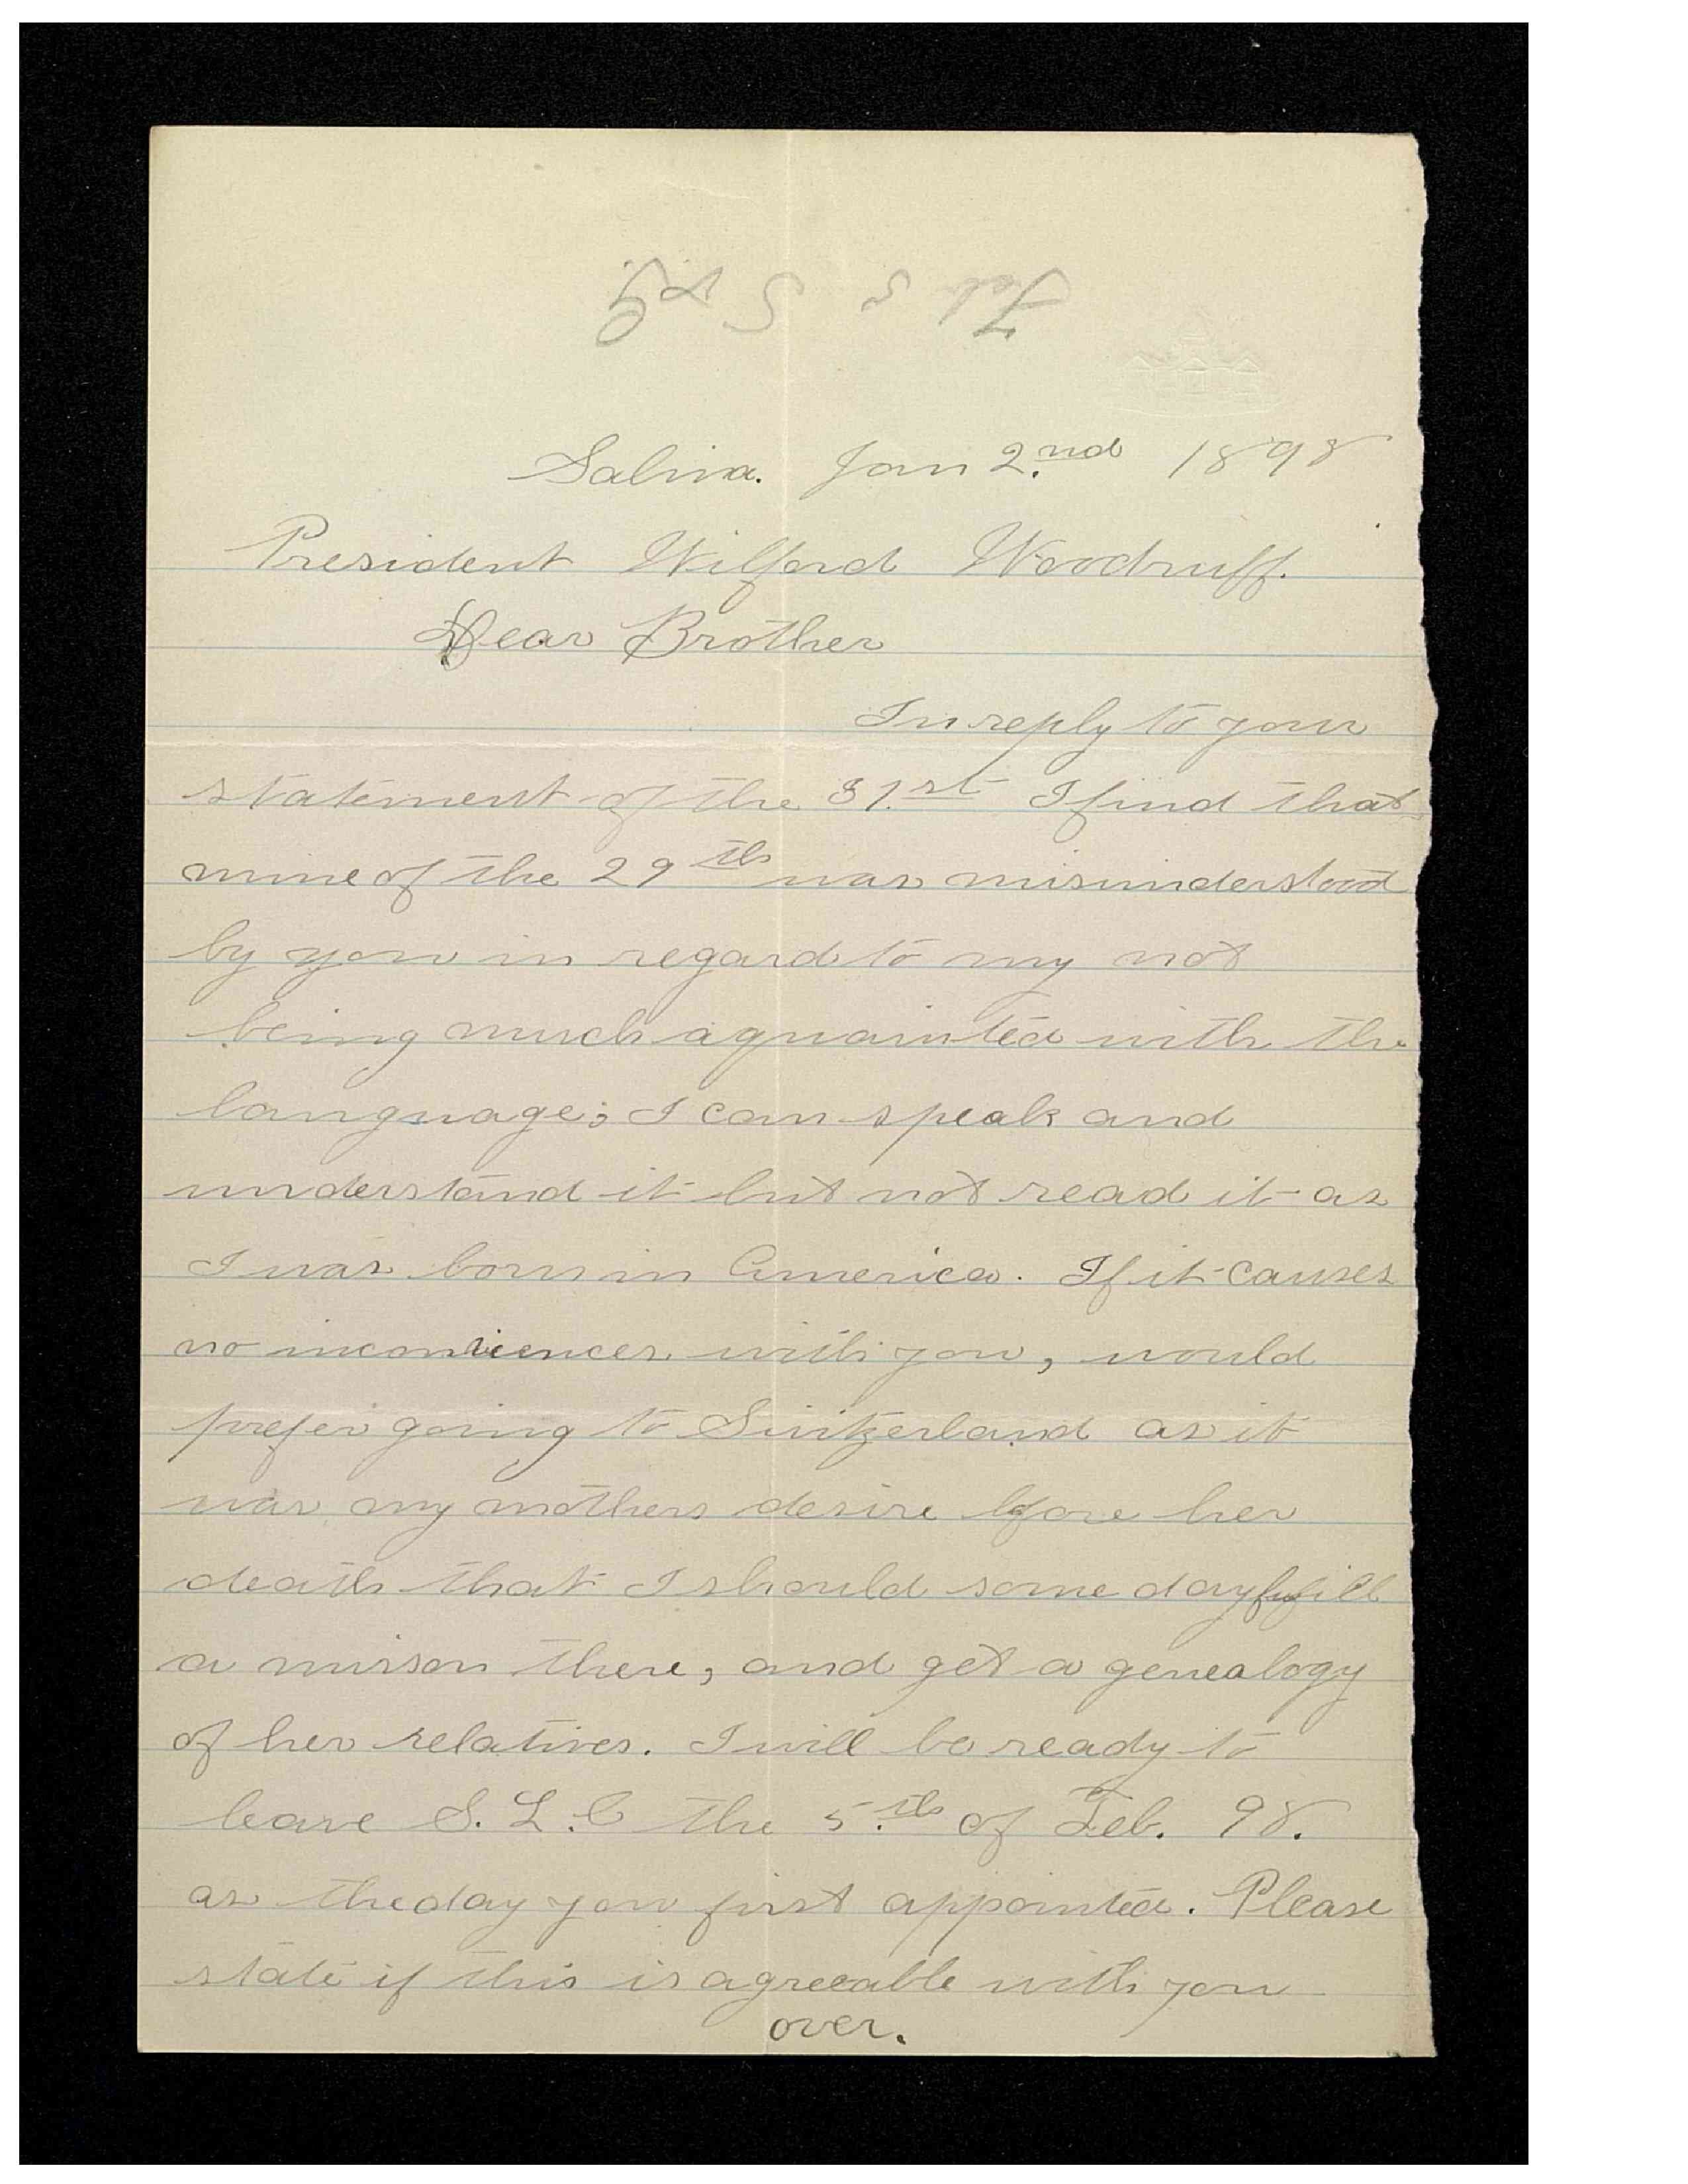 Feb 5 S & G.
Salina. Jan 2.nd 1898
President Wilford Woodruff.
Dear Brother
In reply to your
statement of the 31.st I find that
mine of the 29th was misunderstood
by you in regard to my not
being much aquainted with the
language; I can speak and
understand it but not read it as
I was born in America. If it causes
no inconviences with you, would
prefer going to Switzerland as it
was my mothers desire before her
death that I should some day fufill
a misson there, and get a genealogy
of her relatives. I will be ready to
leave S. L. C the 5.th of Feb. 98.
as the day you first appointed. Please
state if this is agreeable with you
over.